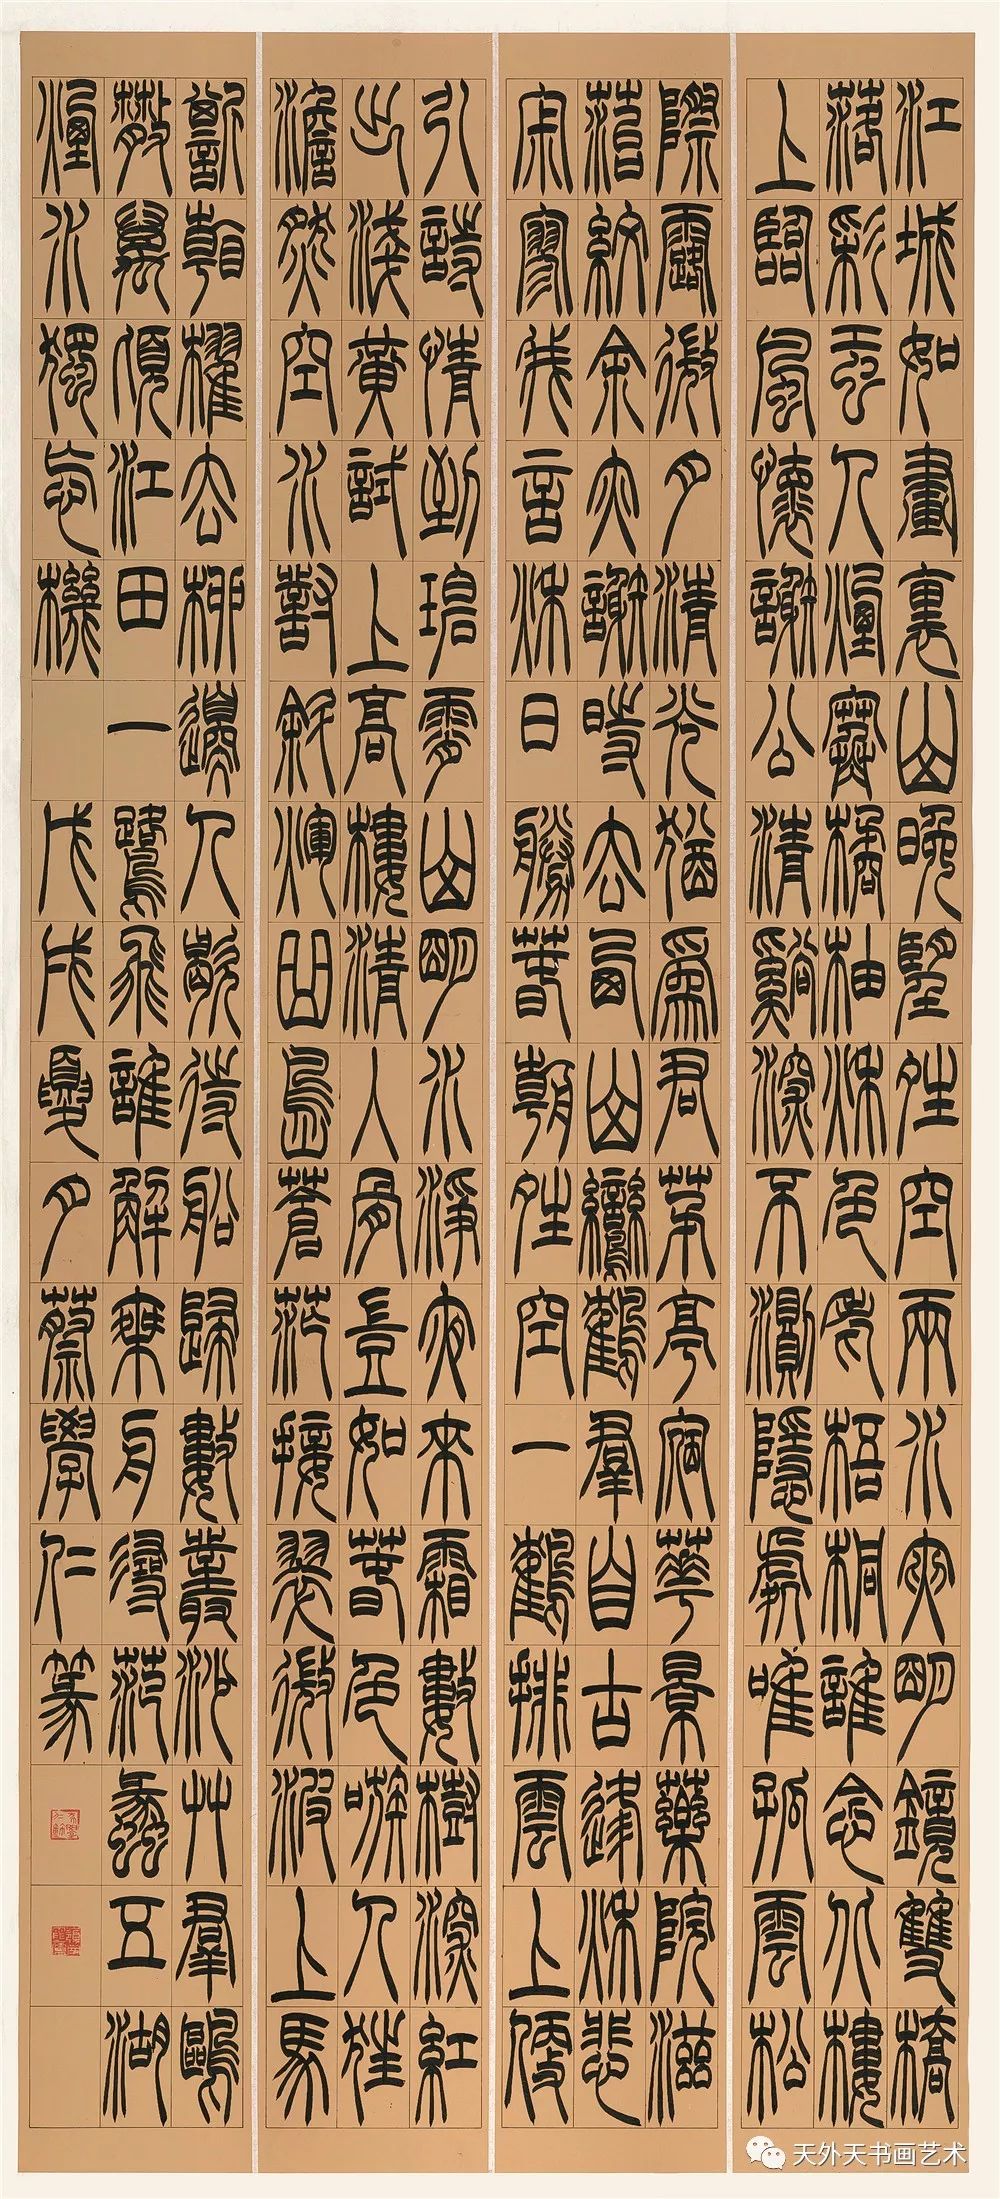 江城如畫裏山晚望晴空兩水夾明鏡雙橋
落彩虹人煙寒橘柚秋色老梧桐誰念北樓
上臨風懷謝公清谿深不測隱處唯孤雲松
際露微月清光猶為君茅亭宿華景藥院滋
苔紋余亦謝時去西山鸞鶴群自古逢秋悲
寂寥我言秋日勝春朝晴空一鶴排雲上便
引詩情到碧霄山明水淨夜來霜數樹深紅
出淺黃試上高樓清入骨豈如春色嗾人狂
澹然空水對斜暉曲島蒼茫接翠微波上馬
嘶看櫂去柳邊人歇待船歸數叢沙艸群鷗
散萬頃江田一鷺飛誰解乘舟尋范蠡五湖
煙水獨忘機 戊戌夏月蔡學仁篆
天外天书画艺术